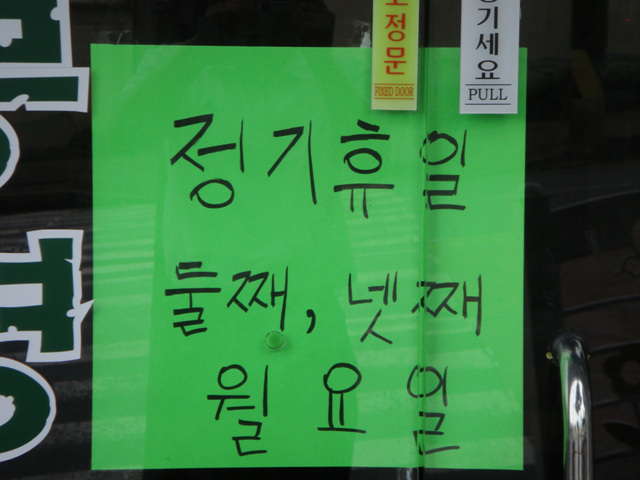 고정문
FIXED DOOR
당기세요
PULL
정기휴일
둘째, 넷째
월요일